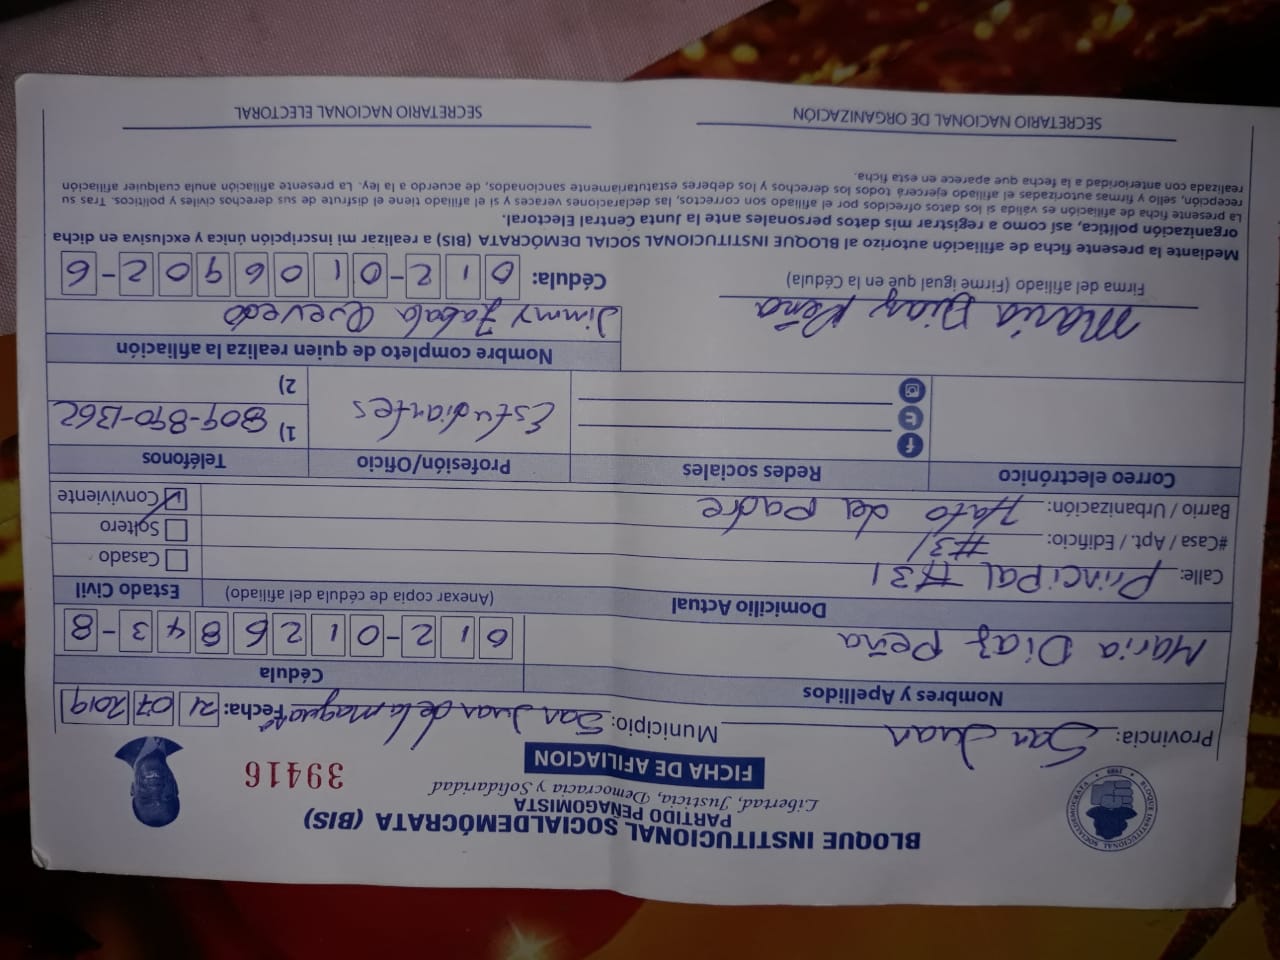 BLOQUE INSTITUCIONAL SOCIALDEMÓCRATA (BIS)
PARTIDO PEÑAGOMISTA
Libertad, Justicia, Democracia y Solidaridad
FICHA DE AFILIACION
39416
BLOQUE INSTITUCIONAL SOCIALDEMOCRATA 1989
Provincia: San Juan Municipio: San Juan de la maguana Fecha: 21 07 2019
Nombres y Apellidos Cédula
Maria Diaz Peña 012-0126843-8
Domicilio Actual (Anexar copia de cédula del afiliado) Estado Civil
Calle: Principal #31 Casado
#Casa / Apt. / Edificio: #31 Soltero
Barrio / Urbanización: Hato del padre Conviviente
Correo electrónico Redes sociales Profesión/Oficio Teléfonos
Estudiantes 1) 809-890-1362
2)
Nombre completo de quien realiza la afiliación
Maria Diaz Peña Jimmy Zabala Quevedo
Firma del afiliado (Firme igual que en la Cédula) Cédula: 012-0106902-6
Mediante la presente ficha de afiliación autorizo al BLOQUE INSTITUCIONAL SOCIAL DEMÓCRATA (BIS) a realizar mi inscripción única y exclusiva en dicha
organización política, así como a registrar mis datos personales ante la Junta Central Electoral.
La presente ficha de afiliación es válida si los datos ofrecidos por el afiliado son correctos, las declaraciones veraces y si el afiliado tiene el disfrute de sus derechos civiles y políticos. Tras su
recepción, sello y firmas autorizadas el afiliado ejercerá todos los derechos y los deberes estatutariamente sancionados, de acuerdo a la ley. La presente afiliación anula cualquier afiliación
realizada con anterioridad a la fecha que aparece en esta ficha.
SECRETARIO NACIONAL DE ORGANIZACIÓN SECRETARIO NACIONAL ELECTORAL